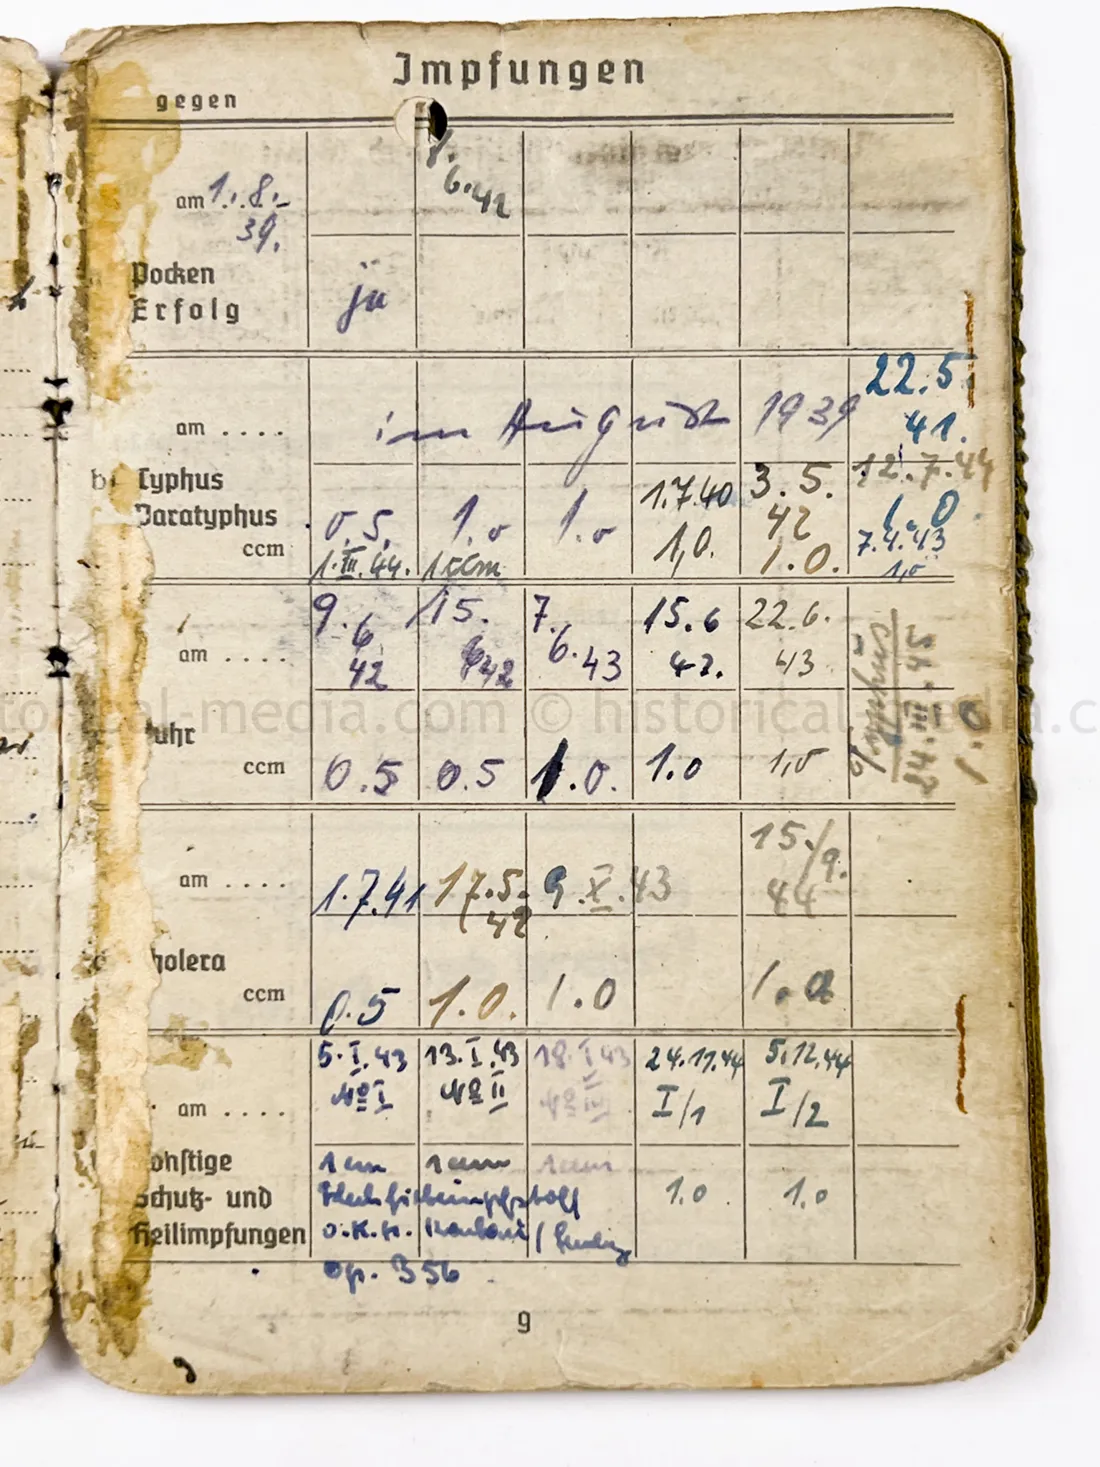 Impfungen
gegen
am 1.8.
39.
6.42
Pocken
Erfolg
ja
am ....
im August 1939
22.5.
41.
b) Typhus
Paratyphus
ccm
0.5.
1.0
1.0
1.7.40
1,0.
3.5.
42
1.0.
12.7.44
1.0
7.4.43
1,0
1.III.44.
1 ccm
am ....
9.
6
42
15.
6 42
7.
6.43
15.6
42.
22.6.
43
Ruhr
ccm
0.5
0.5
1.0.
1.0
1,0
1.0
historical-media.com © historical-media.com
am ....
1.7.41
17.5.
42
9.X.43
15./9.
44
Cholera
ccm
0.5
1.0.
1.0
1.0
am ....
5.I.43
№ I
13.I.43
№ II
18.I.43
№ III
24.11.44
I/1
5.12.44
I/2
Sonstige
Schutz- und
Heilimpfungen
1 cm
1 ccm
1 ccm
1.0
1.0
Fleckfieberimpfstoff
O.K.H.
Op. 356
9